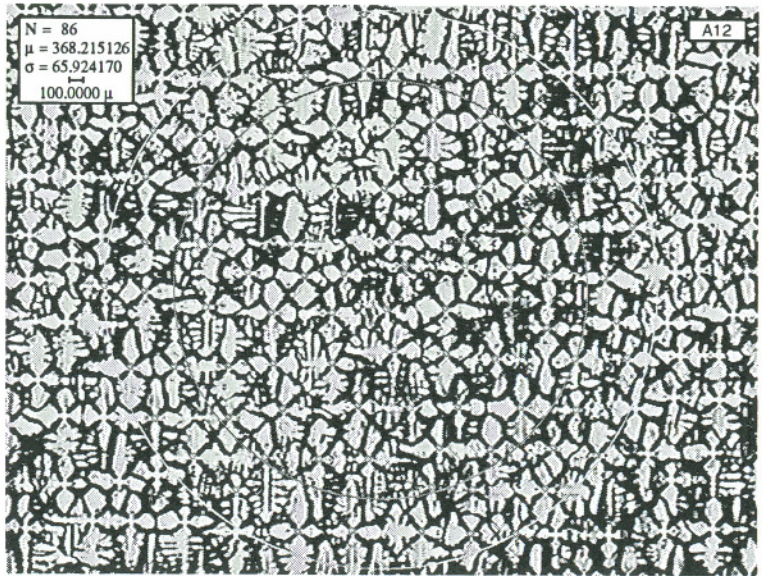 N = 86
μ = 368.215126
σ = 65.924170
100.0000 μ
A12